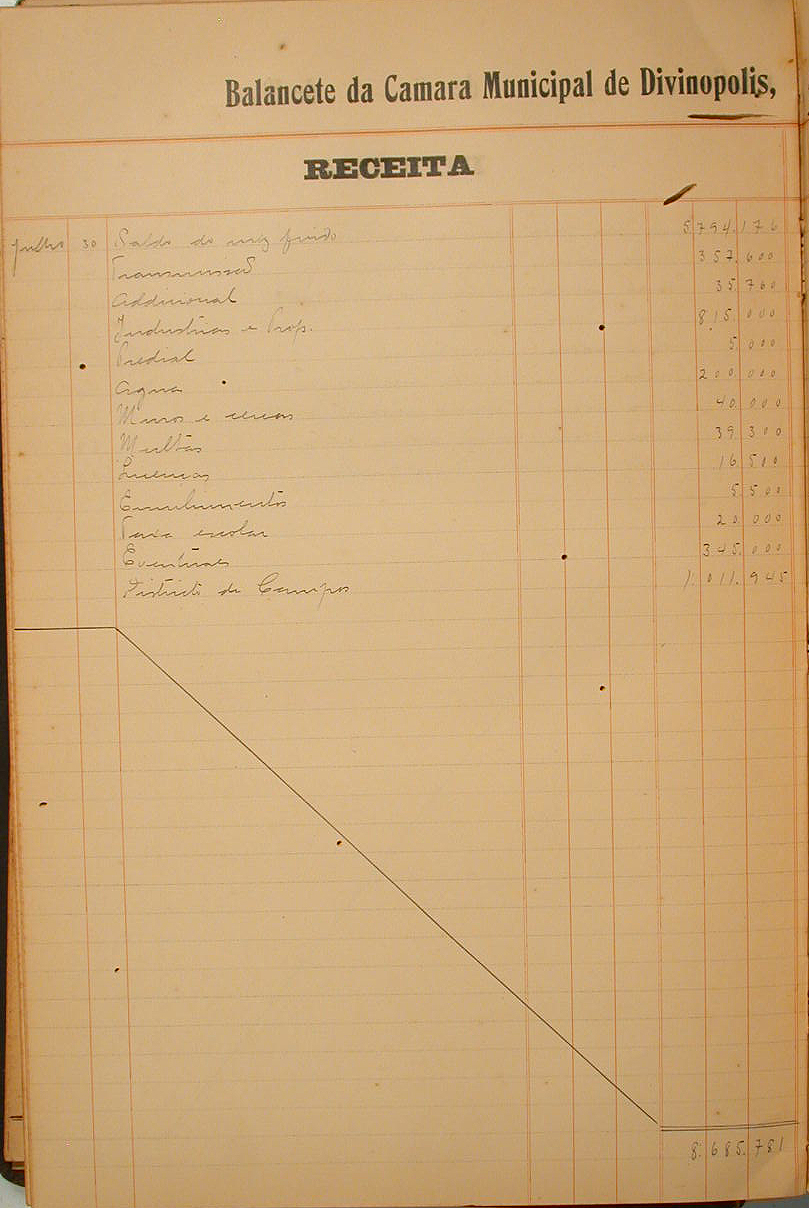 Balancete da Camara Municipal de Divinopolis,
RECEITA
Julho 30 Saldo do mez findo 5.794.176
Transmissão 357.600
Addicional 35.760
Industrias e Prof. 815.000
Predial 5.000
Agua 200.000
Muros e cercas 40.000
Multas 39.300
Licenças 16.500
Emolumentos 5.500
Taxa escolar 20.000
Eventuaes 345.000
Districto de Campos 1.011.945
8.685.781